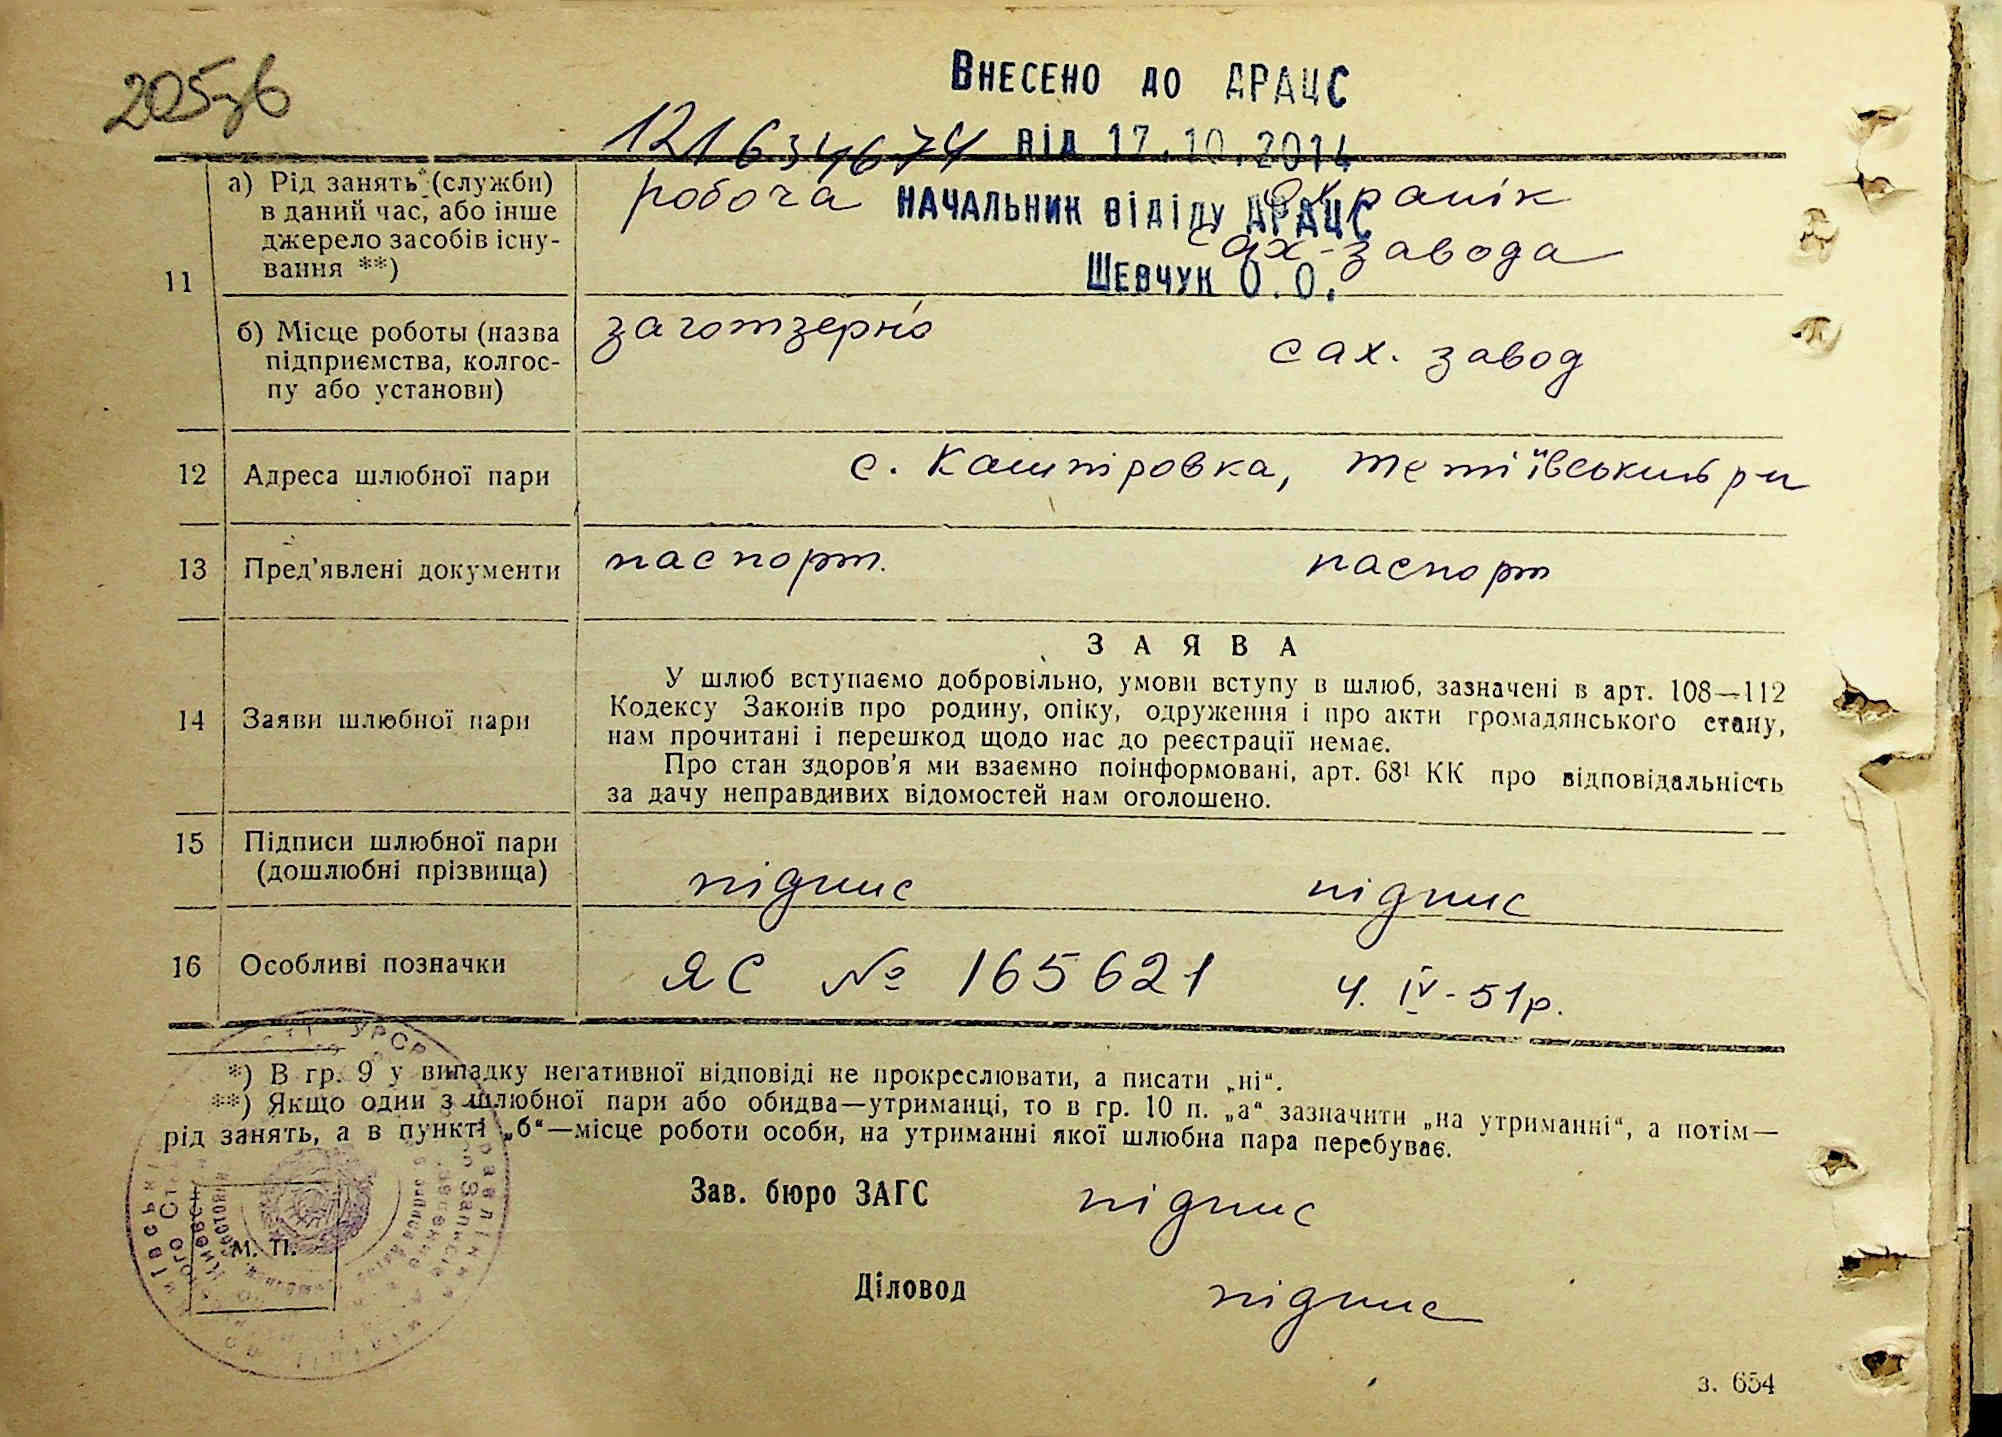 205зв
Внесено до ДРАЦС
121634674 від 17.10.2014
Начальник відділу ДРАЦС
Шевчук О.О.
11
а) Рід занять* (служби)
в даний час, або інше
джерело засобів існу-
вання **)
робоча
охранік
сах-завода
б) Місце роботы (назва
підприємства, колгос-
пу або установи)
заготзерно
сах. завод
12 Адреса шлюбної пари
с. Кашпіровка, Тетіївський р-н
13 Пред’явлені документи
паспорт.
паспорт
14 Заяви шлюбної пари
ЗАЯВА
У шлюб вступаємо добровільно, умови вступу в шлюб, зазначені в арт. 108—112
Кодексу Законів про родину, опіку, одруження і про акти громадянського стану,
нам прочитані і перешкод щодо нас до реєстрації немає.
Про стан здоров’я ми взаємно поінформовані, арт. 68¹ КК про відповідальність
за дачу неправдивих відомостей нам оголошено.
15 Підписи шлюбної пари
(дошлюбні прізвища)
підпис
підпис
16 Особливі позначки
ЯС № 165621
4. IV - 51р.
*) В гр. 9 у випадку негативної відповіді не прокреслювати, а писати „ні“.
**) Якщо один з шлюбної пари або обидва—утриманці, то в гр. 10 п. „а“ зазначити „на утриманні“, а потім—
рід занять, а в пункті „б“—місце роботи особи, на утриманні якої шлюбна пара перебуває.
Зав. бюро ЗАГС
підпис
М. П.
Діловод
підпис
УРСР
з. 654